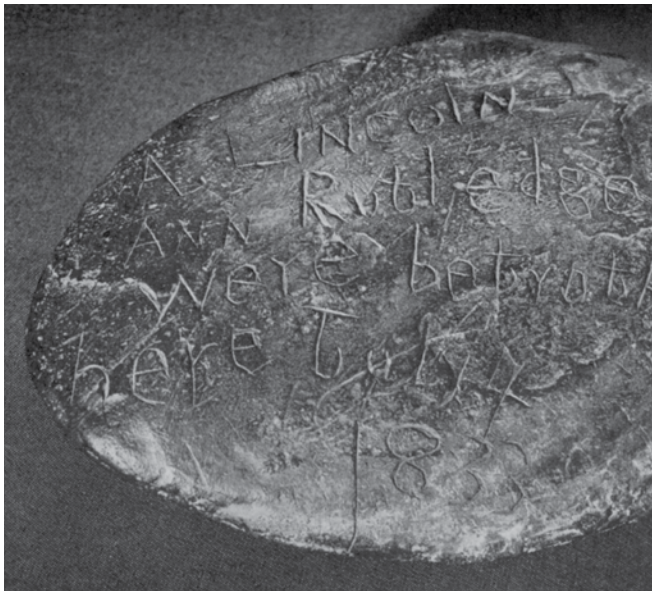 A. LINCOLN
ANN Rutledge
were betroth
here July
1833